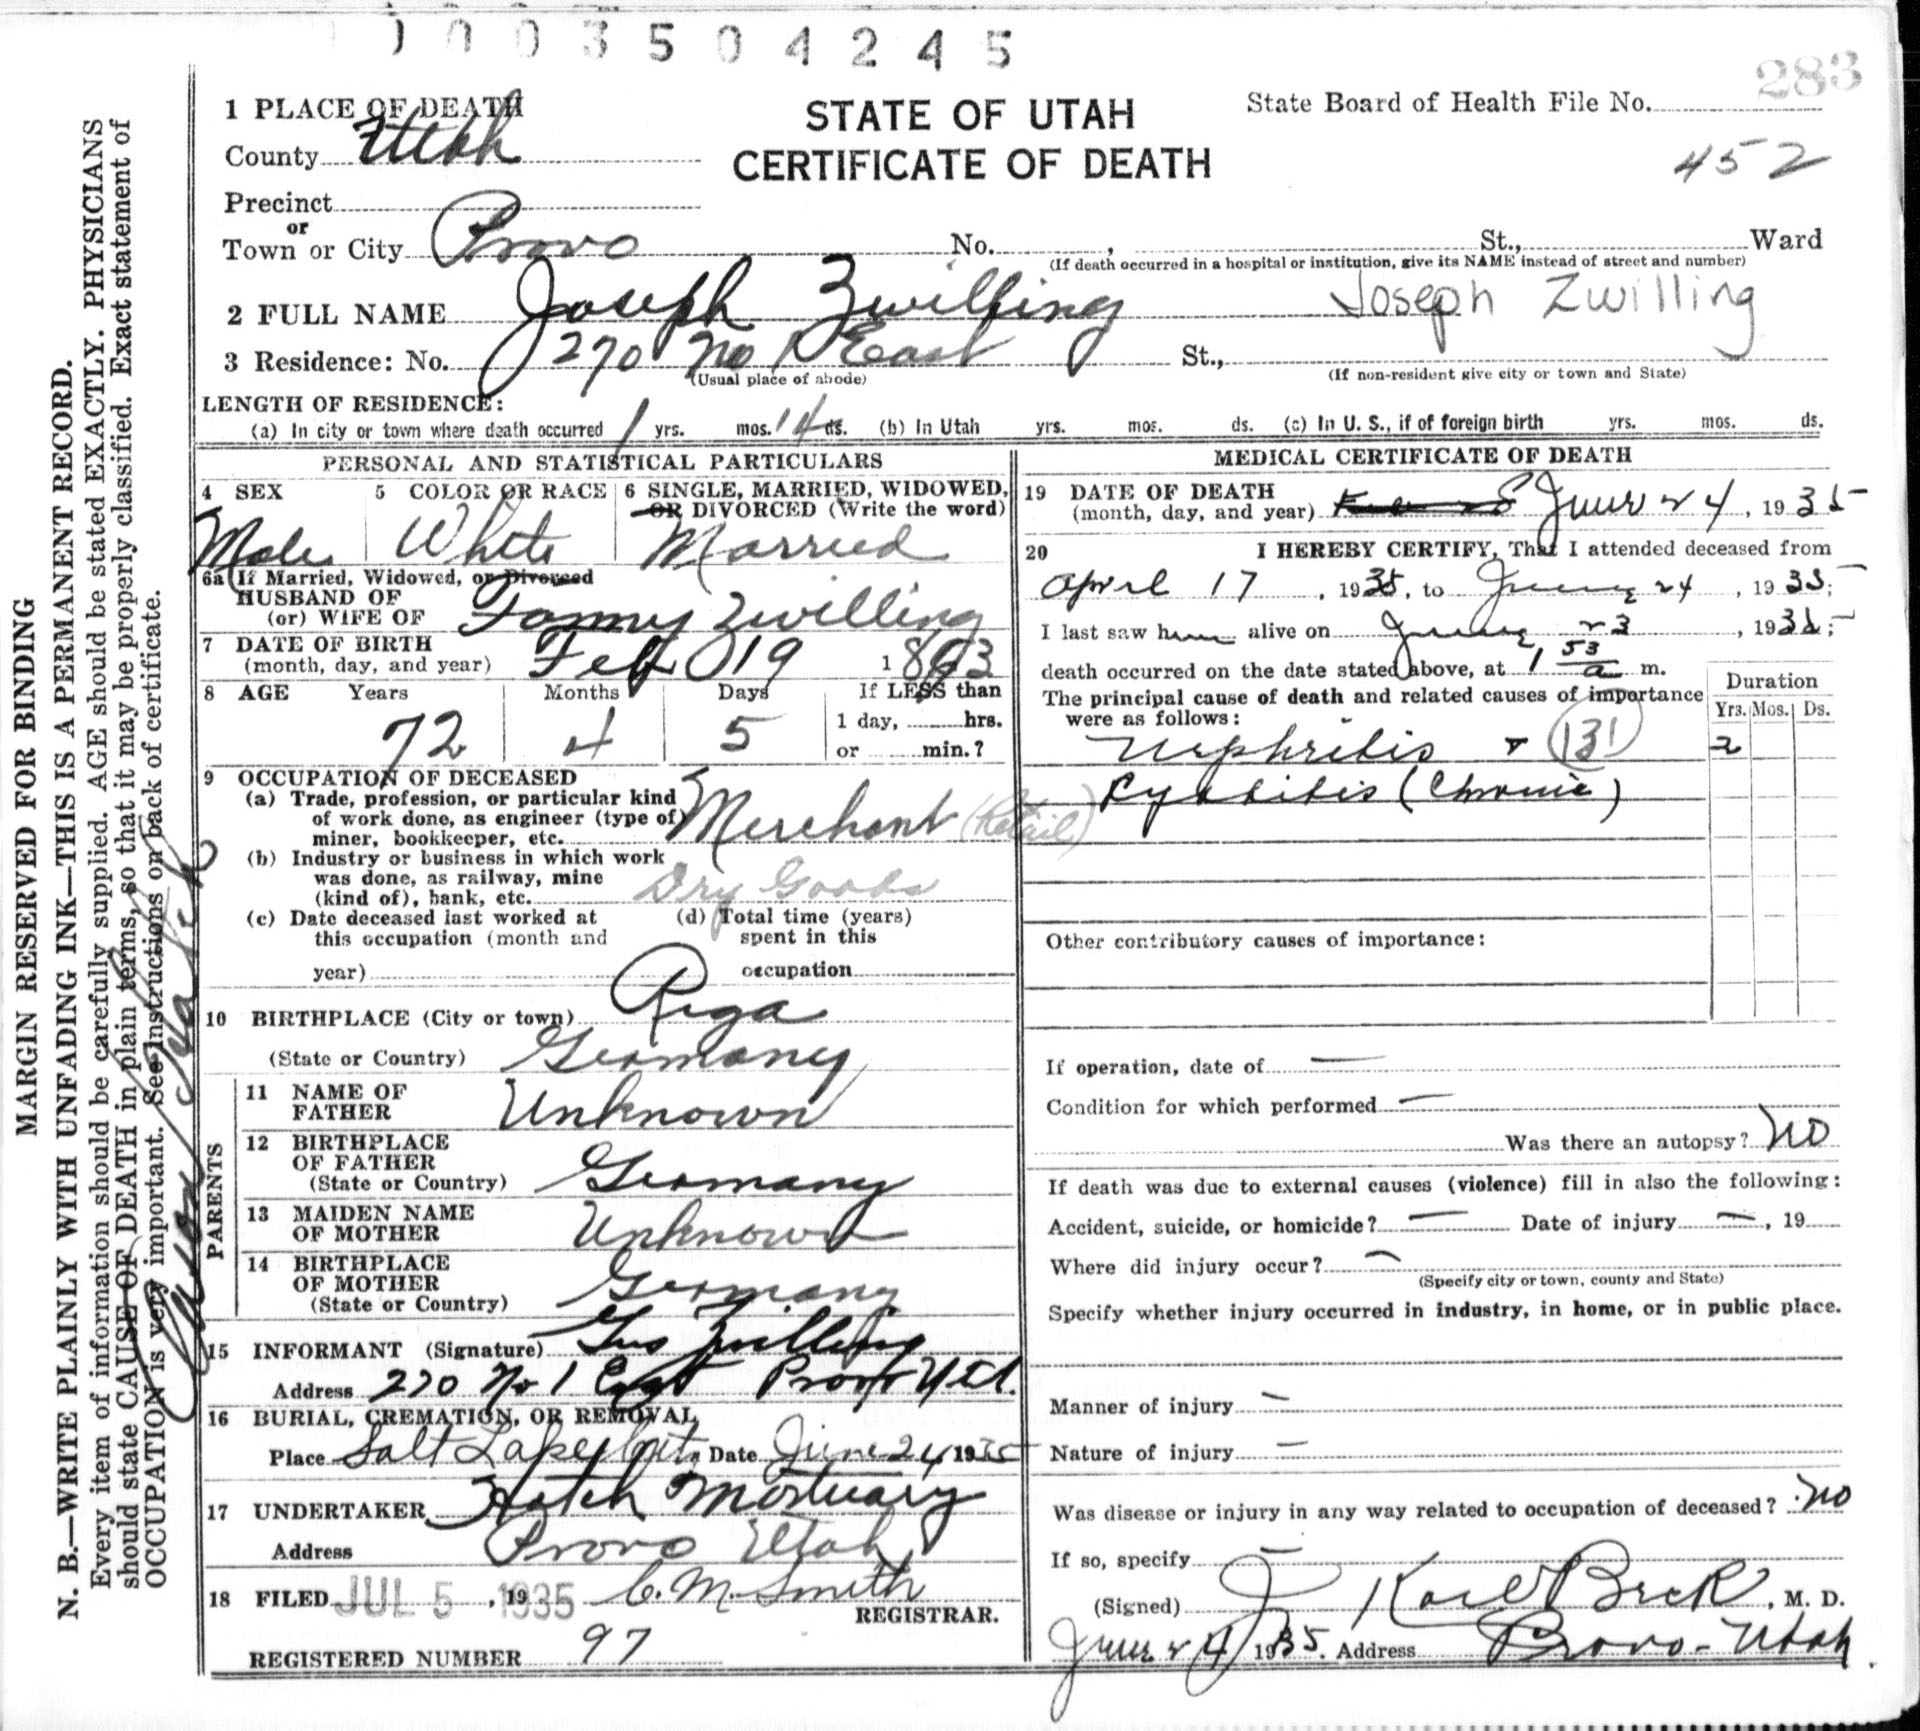 0003504245
283
1 PLACE OF DEATH
STATE OF UTAH
State Board of Health File No.
County Utah
CERTIFICATE OF DEATH
452
Precinct
or
Town or City Provo No. , St., Ward
(If death occurred in a hospital or institution, give its NAME instead of street and number)
2 FULL NAME Joseph Zwilling Joseph Zwilling
3 Residence: No. 270 No 1 East St.,
(Usual place of abode) (If non-resident give city or town and State)
LENGTH OF RESIDENCE:
(a) In city or town where death occurred 1 yrs. mos. 14 ds. (b) In Utah yrs. mos. ds. (c) In U. S., if of foreign birth yrs. mos. ds.
PERSONAL AND STATISTICAL PARTICULARS
4 SEX 5 COLOR OR RACE 6 SINGLE, MARRIED, WIDOWED,
OR DIVORCED (Write the word)
Male White Married
6a If Married, Widowed, or Divorced
HUSBAND OF
(or) WIFE OF Fanny Zwilling
7 DATE OF BIRTH
(month, day, and year) Feb 19 1863
8 AGE Years Months Days If LESS than
72 4 5 1 day, hrs.
or min.?
9 OCCUPATION OF DECEASED
(a) Trade, profession, or particular kind
of work done, as engineer (type of)
miner, bookkeeper, etc. Merchant (Retail)
(b) Industry or business in which work
was done, as railway, mine
(kind of), bank, etc. Dry Goods
(c) Date deceased last worked at (d) Total time (years)
this occupation (month and spent in this
year) occupation
10 BIRTHPLACE (City or town) Riga
(State or Country) Germany
PARENTS
11 NAME OF
FATHER Unknown
12 BIRTHPLACE
OF FATHER
(State or Country) Germany
13 MAIDEN NAME
OF MOTHER Unknown
14 BIRTHPLACE
OF MOTHER
(State or Country) Germany
15 INFORMANT (Signature) Gus Zwilling
Address 270 No 1 East Provo Utah
16 BURIAL, CREMATION, OR REMOVAL
Place Salt Lake City Date June 24, 1935
17 UNDERTAKER Hatch Mortuary
Address Provo Utah
18 FILED JUL 5, 19 1935 C. M. Smith
REGISTRAR.
REGISTERED NUMBER 97
MEDICAL CERTIFICATE OF DEATH
19 DATE OF DEATH
(month, day, and year) June 24, 1935
20 I HEREBY CERTIFY, That I attended deceased from
April 17, 1935, to June 24, 1935;
I last saw him alive on June 23, 1935;
death occurred on the date stated above, at 1 53 a m.
The principal cause of death and related causes of importance
were as follows:
Duration
Yrs. Mos. Ds.
Nephritis + (131) 2
Pyelitis (Chronic)
Other contributory causes of importance:
If operation, date of —
Condition for which performed —
Was there an autopsy? No
If death was due to external causes (violence) fill in also the following:
Accident, suicide, or homicide? — Date of injury —, 19
Where did injury occur? —
(Specify city or town, county and State)
Specify whether injury occurred in industry, in home, or in public place.
Manner of injury —
Nature of injury —
Was disease or injury in any way related to occupation of deceased? No
If so, specify —
(Signed) J Karl Beck, M. D.
June 24 1935. Address Provo - Utah.
MARGIN RESERVED FOR BINDING
N. B.—WRITE PLAINLY WITH UNFADING INK—THIS IS A PERMANENT RECORD.
Every item of information should be carefully supplied. AGE should be stated EXACTLY. PHYSICIANS
should state CAUSE OF DEATH in plain terms, so that it may be properly classified. Exact statement of
OCCUPATION is very important. See instructions on back of certificate.